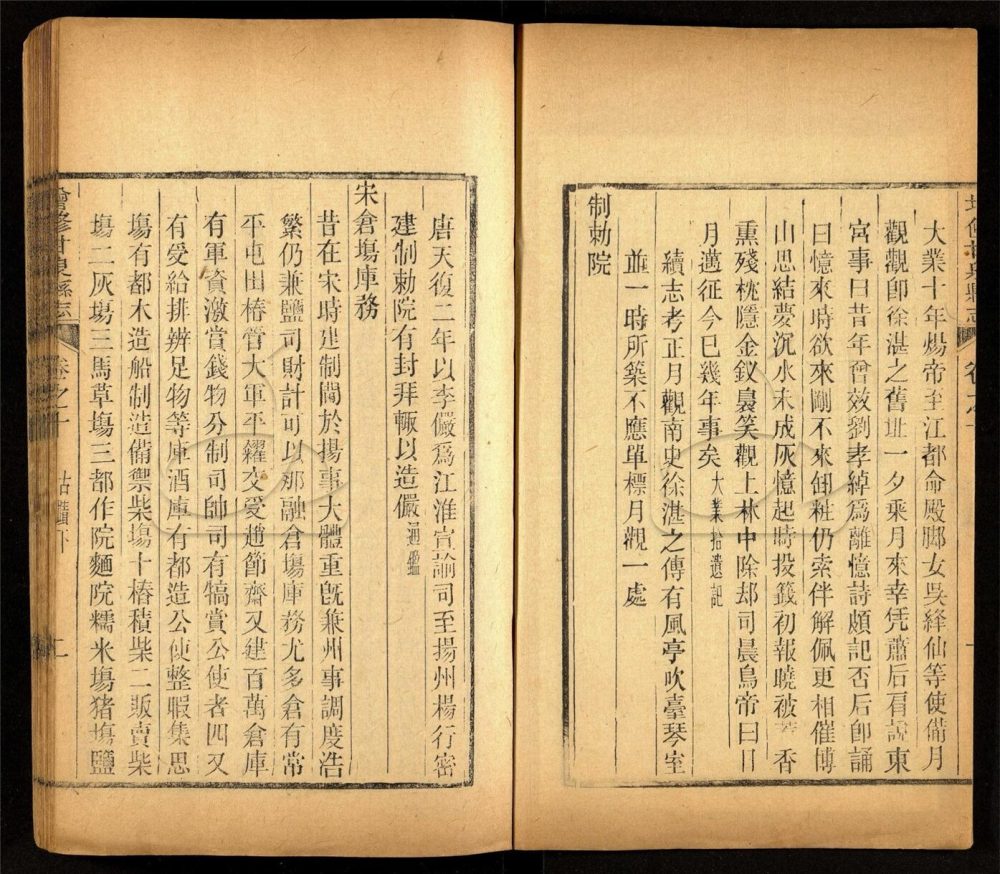 增修甘泉縣志
卷之十
大業十年煬帝至江都命殿脚女吳絳仙等使備月
觀觀卽徐湛之舊址一夕乘月來幸凭蕭后肩說東
宮事曰昔年曾效劉孝綽爲離憶詩頗記否后卽誦
曰憶來時欲來剛不來卸粧仍索伴解佩更相催博
山思結夢沉水未成灰憶起時投籤初報曉被香
熏殘枕隱金釵裊笑觀上林中除却司晨鳥帝曰日
月遄征今已幾年事矣大業拾遺記
續志考正月觀南史徐湛之傳有風亭吹臺琴室
並一時所築不應單標月觀一處
制勅院
唐天復二年以李儼爲江淮宣諭司至揚州楊行密
建制勅院有封拜輒以造儼通鑑
宋倉塲庫務
昔在宋時建制閫於揚事大體重旣兼州事調度浩
繁仍兼鹽司財計可以那融倉塲庫務尤多倉有常
平屯田樁管大軍平糴交受趙節齋又建百萬倉庫
有軍資激賞錢物分制司帥司有犒賞公使者四又
有受給排辨足物等庫酒庫有都造公使整暇集思
塲有都木造船制造備禦柴塲十樁積柴二販賣柴
塲二灰塲三馬草塲三都作院麵院糯米塲猪塲鹽
增修甘泉縣志
卷之十
古蹟下